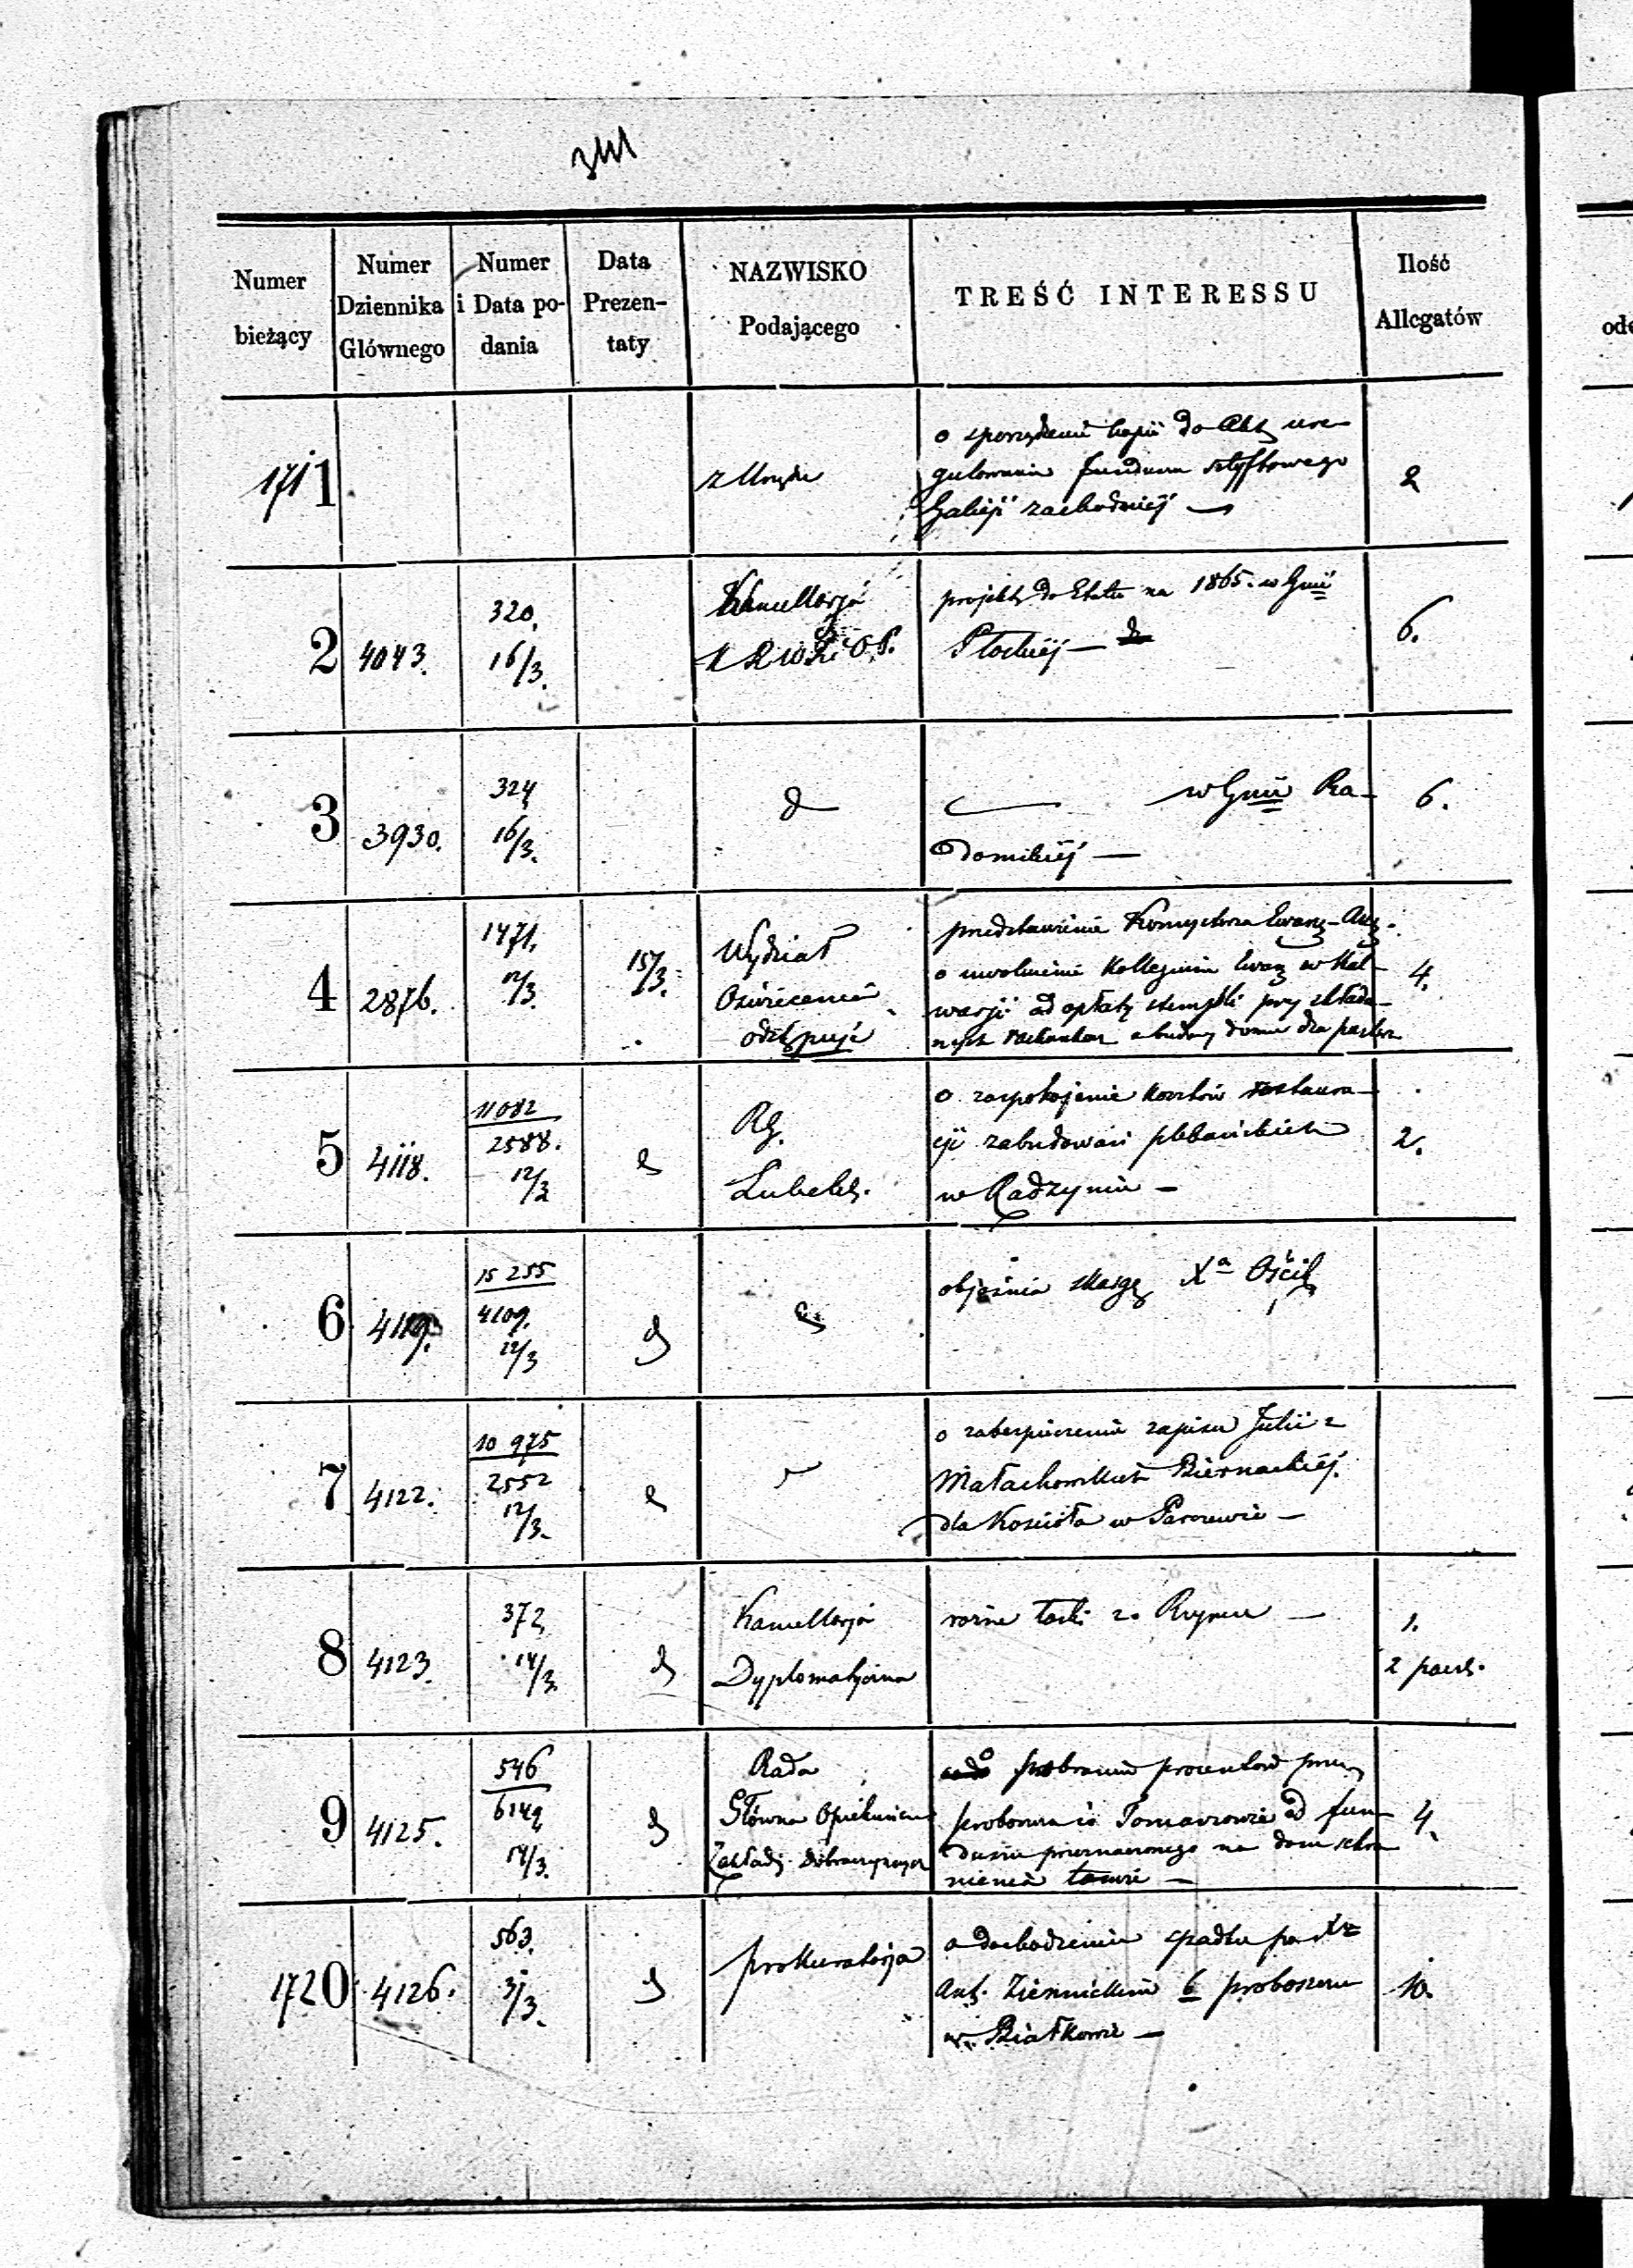 Numer bieżący
Numer Dziennika Głównego
Numer i Data podania
Data Prezentaty
NAZWISKO Podającego
TREŚĆ INTERESSU
Ilość Allegatów
1711
z Urzędu
o sporządzenie kopii do Akt ure-
gulowania funduszu sztyftowego
Galicji zachodniej —
2
2
4043.
320.
16/3.
Kancellarja
K R W R i O. P.
projekty do Etatu na 1865. w Gunii
Płockiej —
6.
3
3930.
324
16/3.
d
w Gunii Ra-
domskiej —
6.
4
2876.
1471.
12/3.
15/3.
Wydział
Oświecenia
odstępuje
przedstawienie Konsystorza Ewang-Aug.
o uwolnienie Kollegium Ewang w Kal-
warji od opłaty stempli przy składa-
nych rachunkach budowy domu dla pastora
4.
5
4118.
11082
2588.
12/3
d
Rg.
Lubels.
o zaspokojenie kosztów restaura-
cji zabudowań plebańskich
w Radzyniu —
2.
6
4119.
15 255
4109.
12/3
d
d
objaśnia skargę Xa
7
4122.
10 975
2552
12/3.
d
o zabezpieczenie zapisu Julii z
Małachowskich Biernackiej
dla Kościoła w Parczewie —
8
4123.
372
14/3.
d
Kancellarja
Dyplomatyczna
różne łaski z Rzymu —
1.
2 paczk.
9
4125.
546
6149
14/3.
d
Rada
Główna Opiekuńcza
Zakładów Dobroczynnych
o pobranie procentów przez
proboszcza w Tomaszowie od fun-
duszu przeznaczonego na dom schro-
nienia tamże —
4.
1720
4126.
563.
3/3.
d
prokuratorja
o dochodzenie spadku po Xe
Ant. Ziemnickim b proboszczu
w Białkowie —
10.